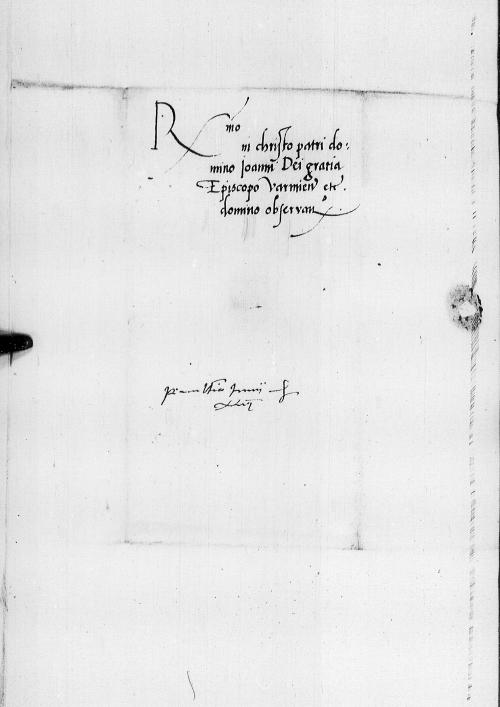 Rmo
in christo patri do:
mino Joanni Dei gratia
Episcopo Varmien etc.
domino observan
Junij